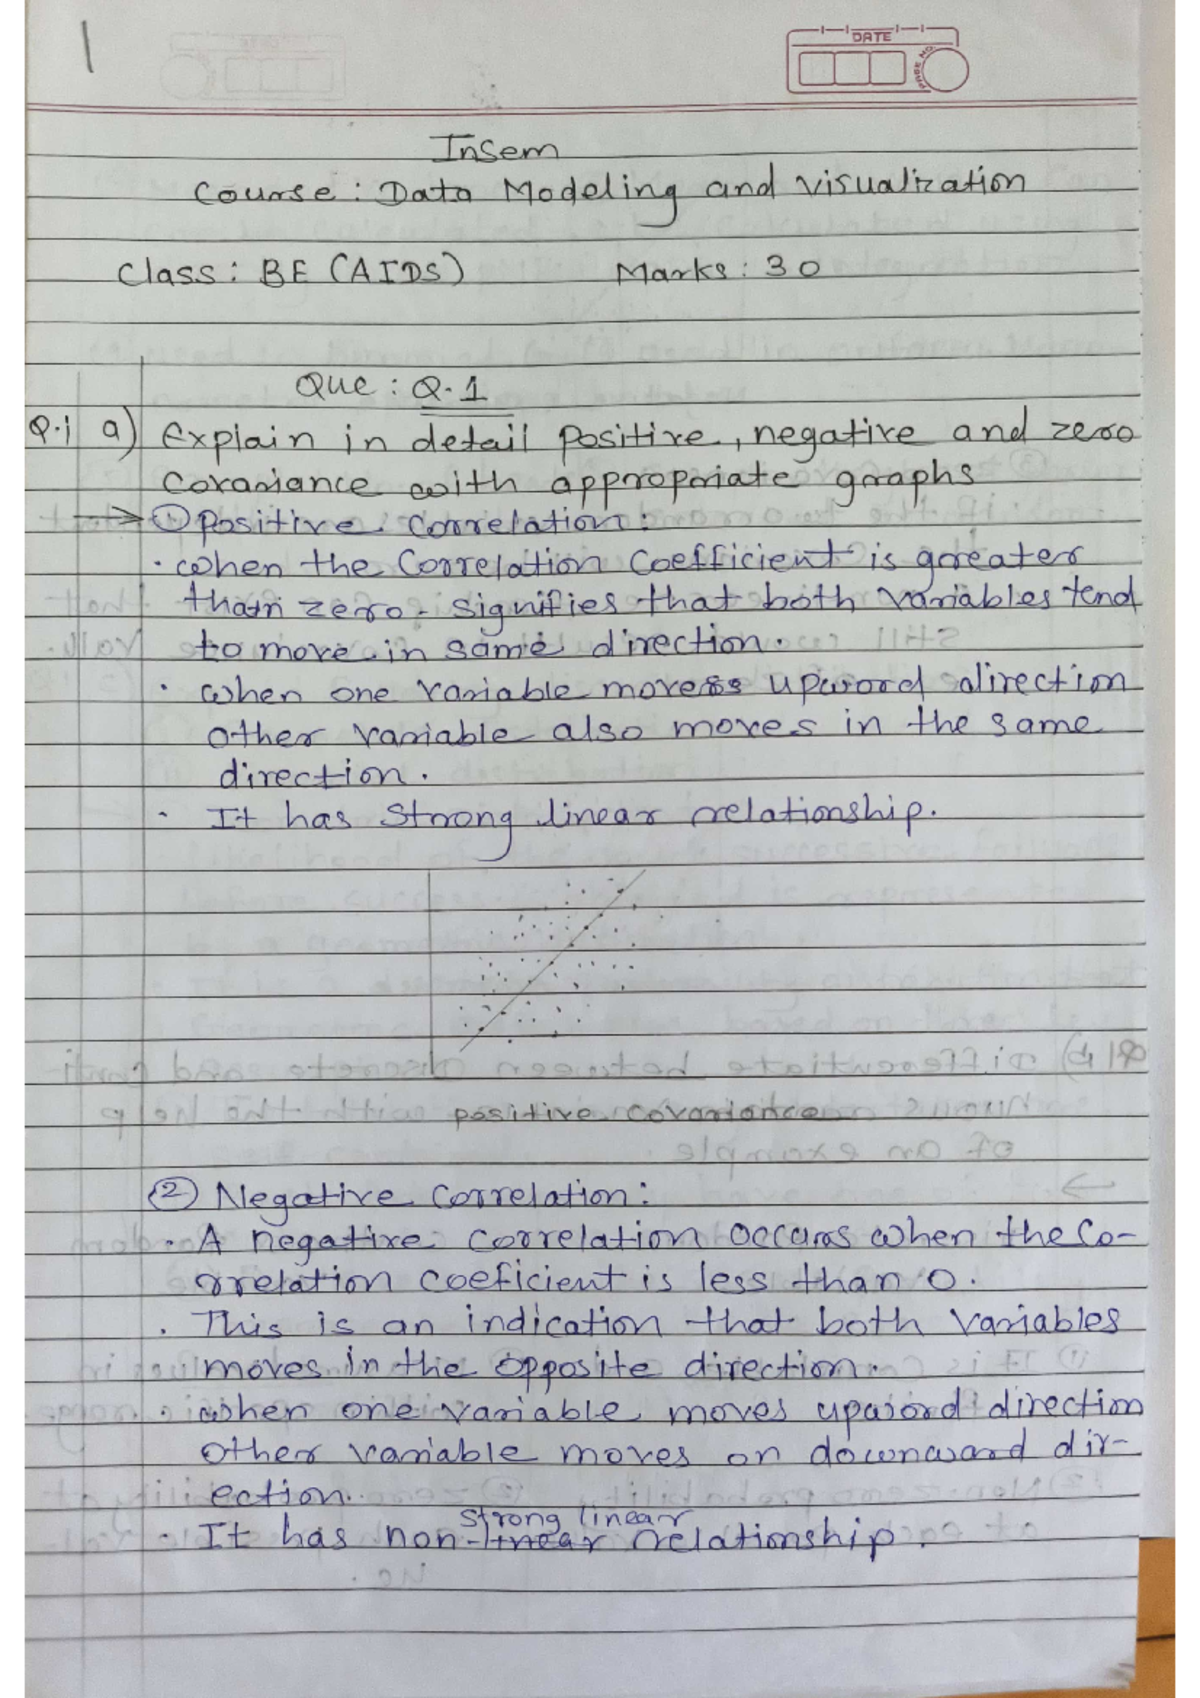 1
DATE
PAGE NO.
Insem
Course : Data Modeling and visualization
Class : BE (AIDS) Marks : 30
Que : Q.1
Q.1 a) Explain in detail positive, negative and zero
Covariance with appropriate graphs
→ ① Positive Correlation :
· When the Correlation Coefficient is greater
than zero - signifies that both variables tend
to move in same direction.
· When one variable moves upword direction
other variable also moves in the same
direction.
· It has strong linear relationship.
positive covariance
② Negative Correlation :
· A negative correlation occurs when the Co-
rrelation coeficient is less than 0.
· This is an indication that both variables
moves in the opposite direction.
· when one variable moves upword direction
other variable moves on downward dir-
ection.
strong linear
· It has non-linear relationship.